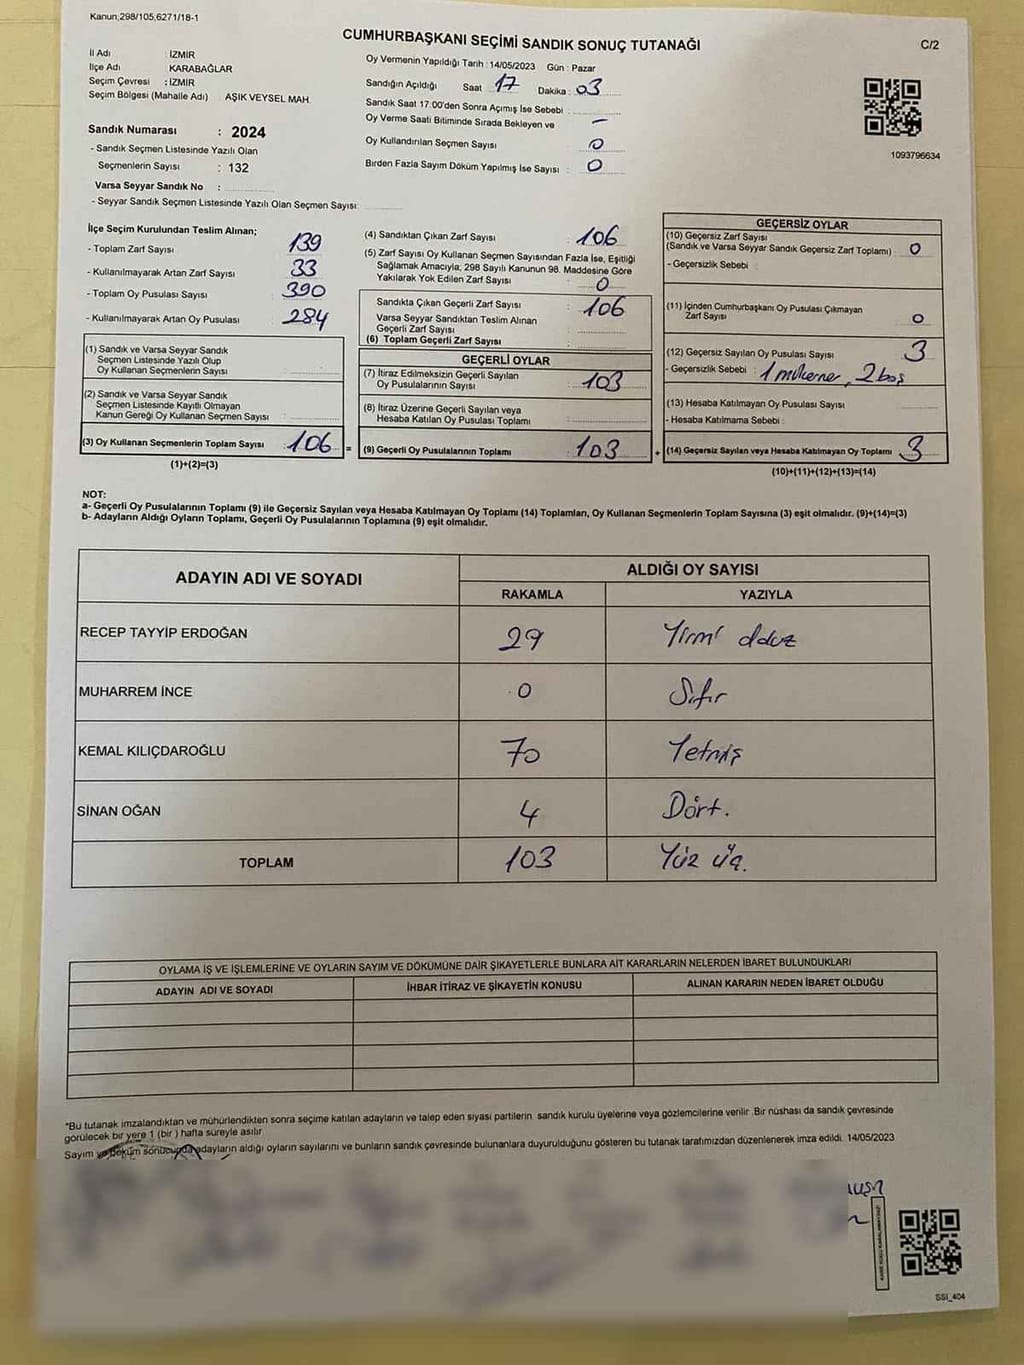 Kanun,298/105,6271/18-1
CUMHURBAŞKANI SEÇİMİ SANDIK SONUÇ TUTANAĞI
C/2
İl Adı : İZMİR
İlçe Adı : KARABAĞLAR
Seçim Çevresi : İZMİR
Seçim Bölgesi (Mahalle Adı) AŞIK VEYSEL MAH.
Sandık Numarası : 2024
- Sandık Seçmen Listesinde Yazılı Olan
Seçmenlerin Sayısı : 132
Varsa Seyyar Sandık No :
- Seyyar Sandık Seçmen Listesinde Yazılı Olan Seçmen Sayısı:
Oy Vermenin Yapıldığı Tarih : 14/05/2023 Gün : Pazar
Sandığın Açıldığı Saat 17 Dakika : 03
Sandık Saat 17:00'den Sonra Açımış İse Sebebi :
Oy Verme Saati Bitiminde Sırada Bekleyen ve -
Oy Kullandırılan Seçmen Sayısı : 0
Birden Fazla Sayım Döküm Yapılmış İse Sayısı : 0
1093796634
İlçe Seçim Kurulundan Teslim Alınan;
- Toplam Zarf Sayısı : 139
- Kullanılmayarak Artan Zarf Sayısı : 33
- Toplam Oy Pusulası Sayısı : 390
- Kullanılmayarak Artan Oy Pusulası : 284
(1) Sandık ve Varsa Seyyar Sandık
Seçmen Listesinde Yazılı Olup
Oy Kullanan Seçmenlerin Sayısı :
(2) Sandık ve Varsa Seyyar Sandık
Seçmen Listesinde Kayıtlı Olmayan
Kanun Gereği Oy Kullanan Seçmen Sayısı :
(3) Oy Kullanan Seçmenlerin Toplam Sayısı : 106 =
(1)+(2)=(3)
(4) Sandıktan Çıkan Zarf Sayısı : 106
(5) Zarf Sayısı Oy Kullanan Seçmen Sayısından Fazla İse, Eşitliği
Sağlamak Amacıyla; 298 Sayılı Kanunun 98. Maddesine Göre
Yakılarak Yok Edilen Zarf Sayısı : 0
Sandıkta Çıkan Geçerli Zarf Sayısı : 106
Varsa Seyyar Sandıktan Teslim Alınan
Geçerli Zarf Sayısı :
(6) Toplam Geçerli Zarf Sayısı :
GEÇERLİ OYLAR
(7) İtiraz Edilmeksizin Geçerli Sayılan
Oy Pusulalarının Sayısı : 103
(8) İtiraz Üzerine Geçerli Sayılan veya
Hesaba Katılan Oy Pusulası Toplamı :
(9) Geçerli Oy Pusulalarının Toplamı : 103 +
GEÇERSİZ OYLAR
(10) Geçersiz Zarf Sayısı
(Sandık ve Varsa Seyyar Sandık Geçersiz Zarf Toplamı) : 0
- Geçersizlik Sebebi :
(11) İçinden Cumhurbaşkanı Oy Pusulası Çıkmayan
Zarf Sayısı : 0
(12) Geçersiz Sayılan Oy Pusulası Sayısı : 3
- Geçersizlik Sebebi : 1 mükerrer, 2 boş
(13) Hesaba Katılmayan Oy Pusulası Sayısı :
- Hesaba Katılmama Sebebi :
(14) Geçersiz Sayılan veya Hesaba Katılmayan Oy Toplamı : 3
(10)+(11)+(12)+(13)=(14)
NOT:
a- Geçerli Oy Pusulalarının Toplamı (9) ile Geçersiz Sayılan veya Hesaba Katılmayan Oy Toplamı (14) Toplamları, Oy Kullanan Seçmenlerin Toplam Sayısına (3) eşit olmalıdır. (9)+(14)=(3)
b- Adayların Aldığı Oyların Toplamı, Geçerli Oy Pusulalarının Toplamına (9) eşit olmalıdır.
ADAYIN ADI VE SOYADI
ALDIĞI OY SAYISI
RAKAMLA YAZIYLA
RECEP TAYYİP ERDOĞAN 29 Yirmi dokuz
MUHARREM İNCE 0 Sıfır
KEMAL KILIÇDAROĞLU 70 Yetmiş
SİNAN OĞAN 4 Dört.
TOPLAM 103 Yüz üç.
OYLAMA İŞ VE İŞLEMLERİNE VE OYLARIN SAYIM VE DÖKÜMÜNE DAİR ŞİKAYETLERLE BUNLARA AİT KARARLARIN NELERDEN İBARET BULUNDUKLARI
ADAYIN ADI VE SOYADI İHBAR İTİRAZ VE ŞİKAYETİN KONUSU ALINAN KARARIN NEDEN İBARET OLDUĞU
*Bu tutanak imzalandıktan ve mühürlendikten sonra seçime katılan adayların ve talep eden siyasi partilerin sandık kurulu üyelerine veya gözlemcilerine verilir .Bir nüshası da sandık çevresinde
görülecek bir yere 1 (bir ) hafta süreyle asılır.
Sayım ve döküm sonucunda adayların aldığı oyların sayılarını ve bunların sandık çevresinde bulunanlara duyurulduğunu gösteren bu tutanak tarafımızdan düzenlenerek imza edildi. 14/05/2023
SSI_404